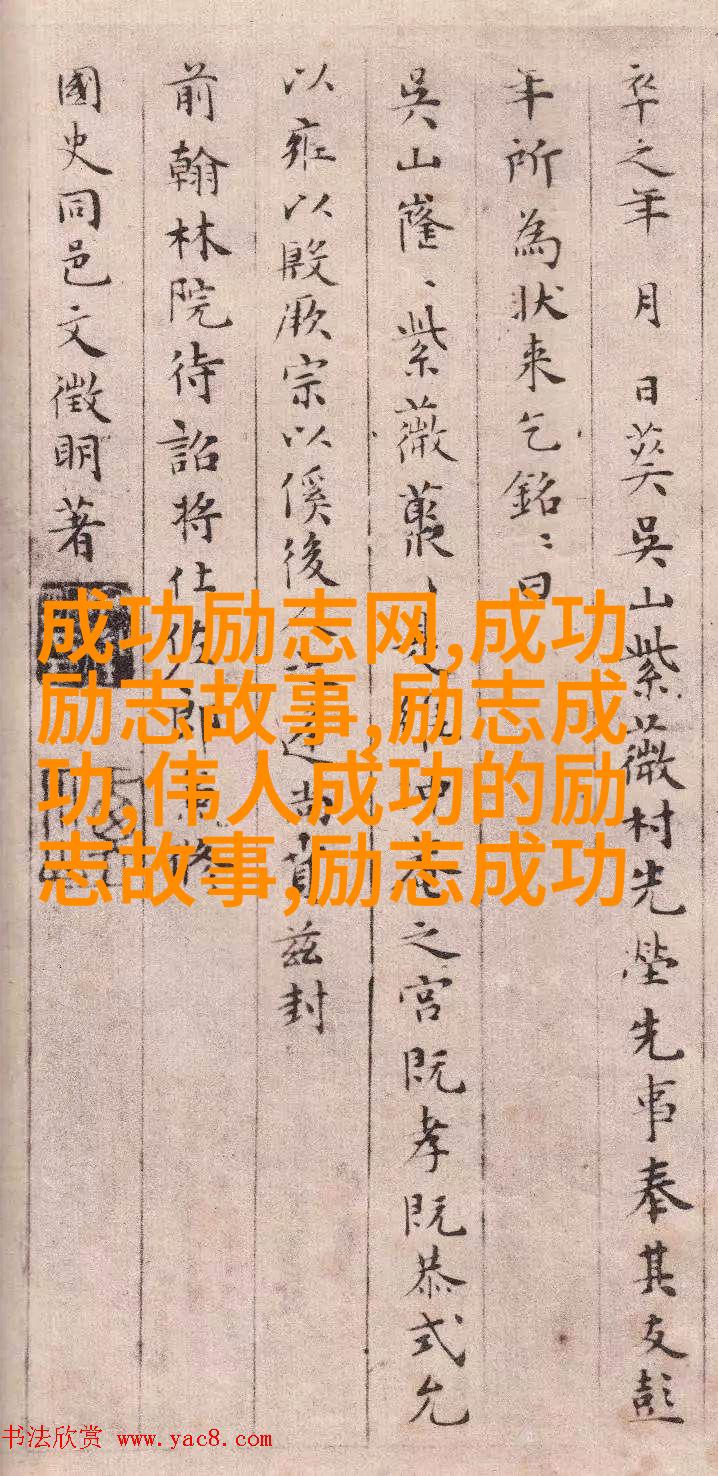 卒之年 月 日葬吳山紫薇村先塋先事奉其友彭
年所為狀来乞銘〻曰
吳山窿〻紫薇叢〻
之宮既孝既恭式允
以雍以殿厥宗以傒後
茲封
前翰林院待詔將仕佐郎
國史同邑文徵明著
成功励志网,成功
励志故事,励志成
功,伟人成功的励
志故事,励志成功
书法欣赏 www.yac8.com